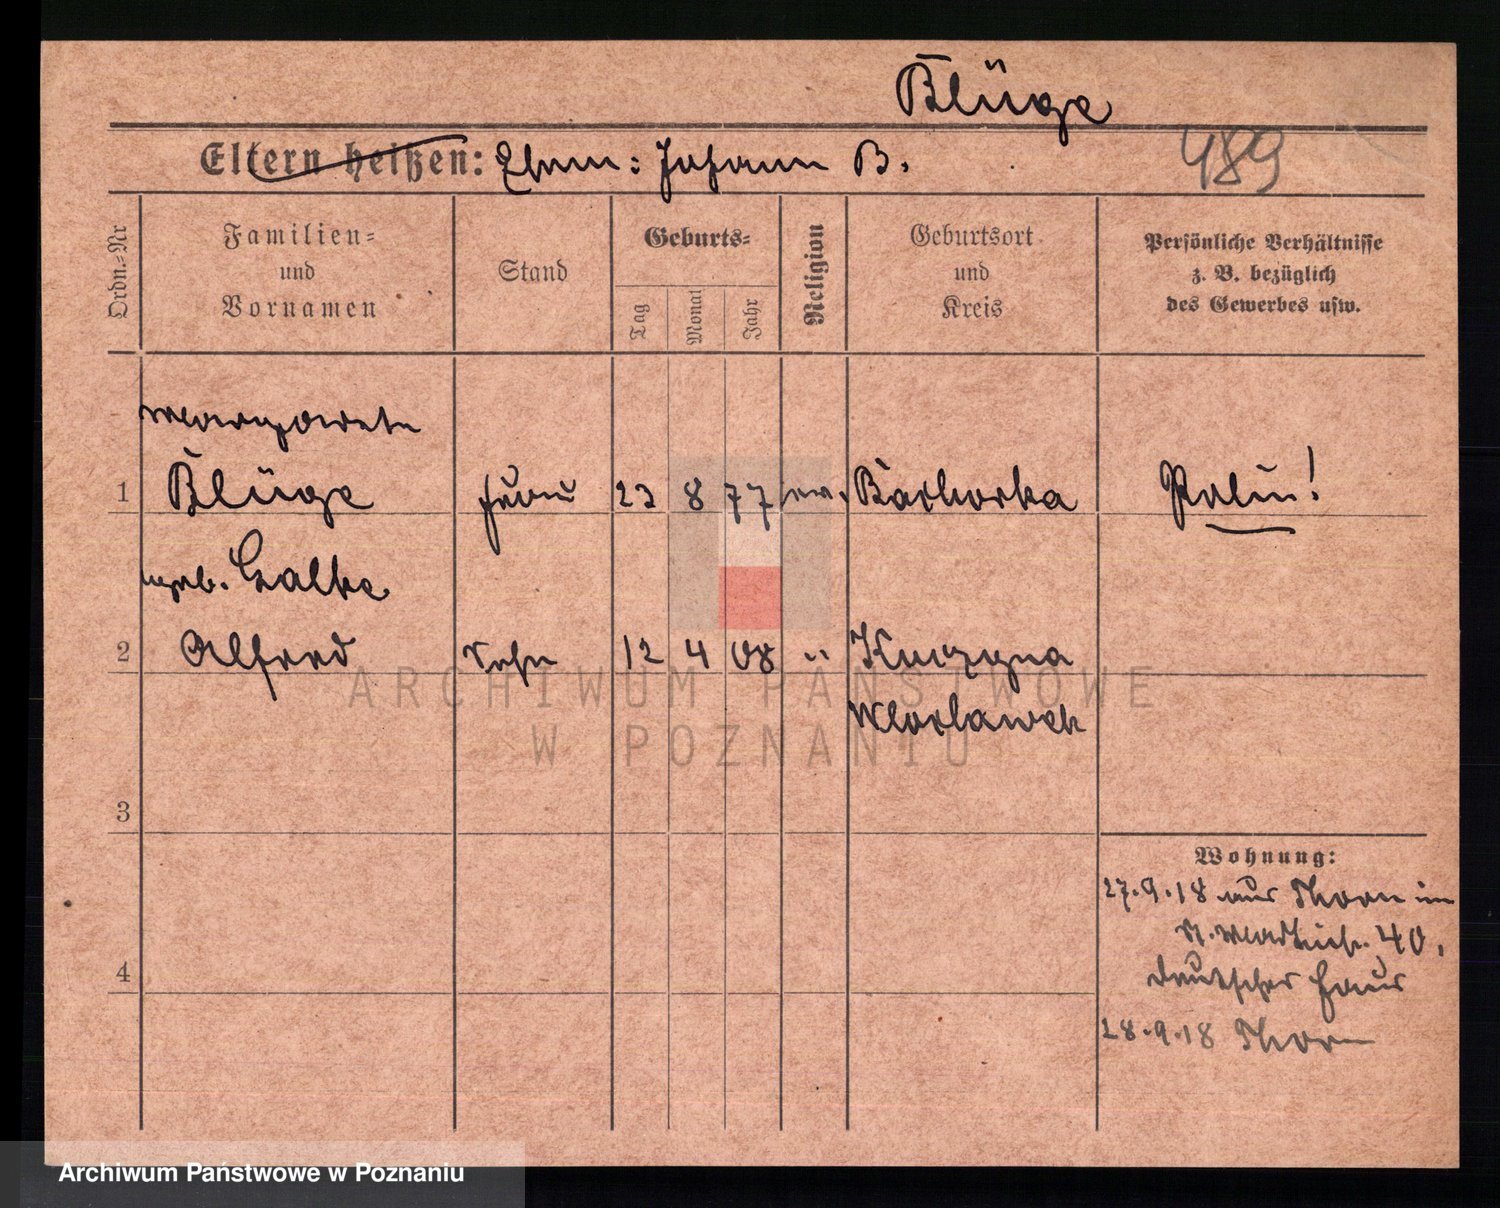 Blüge
Eltern heißen: Ehem: Johann B.
489
Ordn.-Nr
Familien-
und
Vornamen
Stand
Geburts-
Tag
Monat
Jahr
Religion
Geburtsort
und
Kreis
Persönliche Verhältnisse
z. B. bezüglich
des Gewerbes usw.
Margarete
1 Blüge Frau 23 8 77 ev. Bachorka Polin!
geb. Galke
2 Alfred Sohn 12 4 08 "
Wloclawek
3
Wohnung:
27.9.18 aus Thorn in
40,
4
deutsches Haus
28.9.18 Thorn
ARCHIWUM PAŃSTWOWE
W POZNANIU
Archiwum Państwowe w Poznaniu